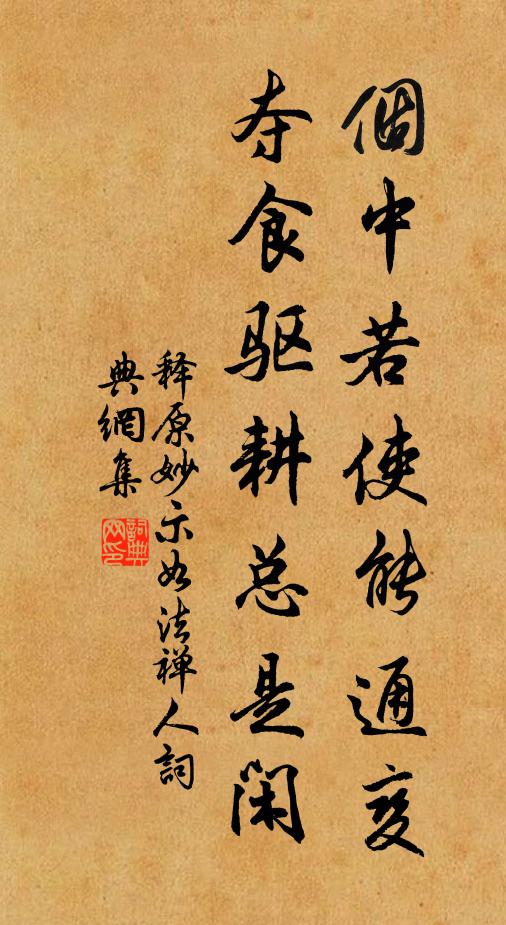 個中若使能通变
夺食驱耕总是闲
释原妙示如法禅人詞
典網集
詞典網印